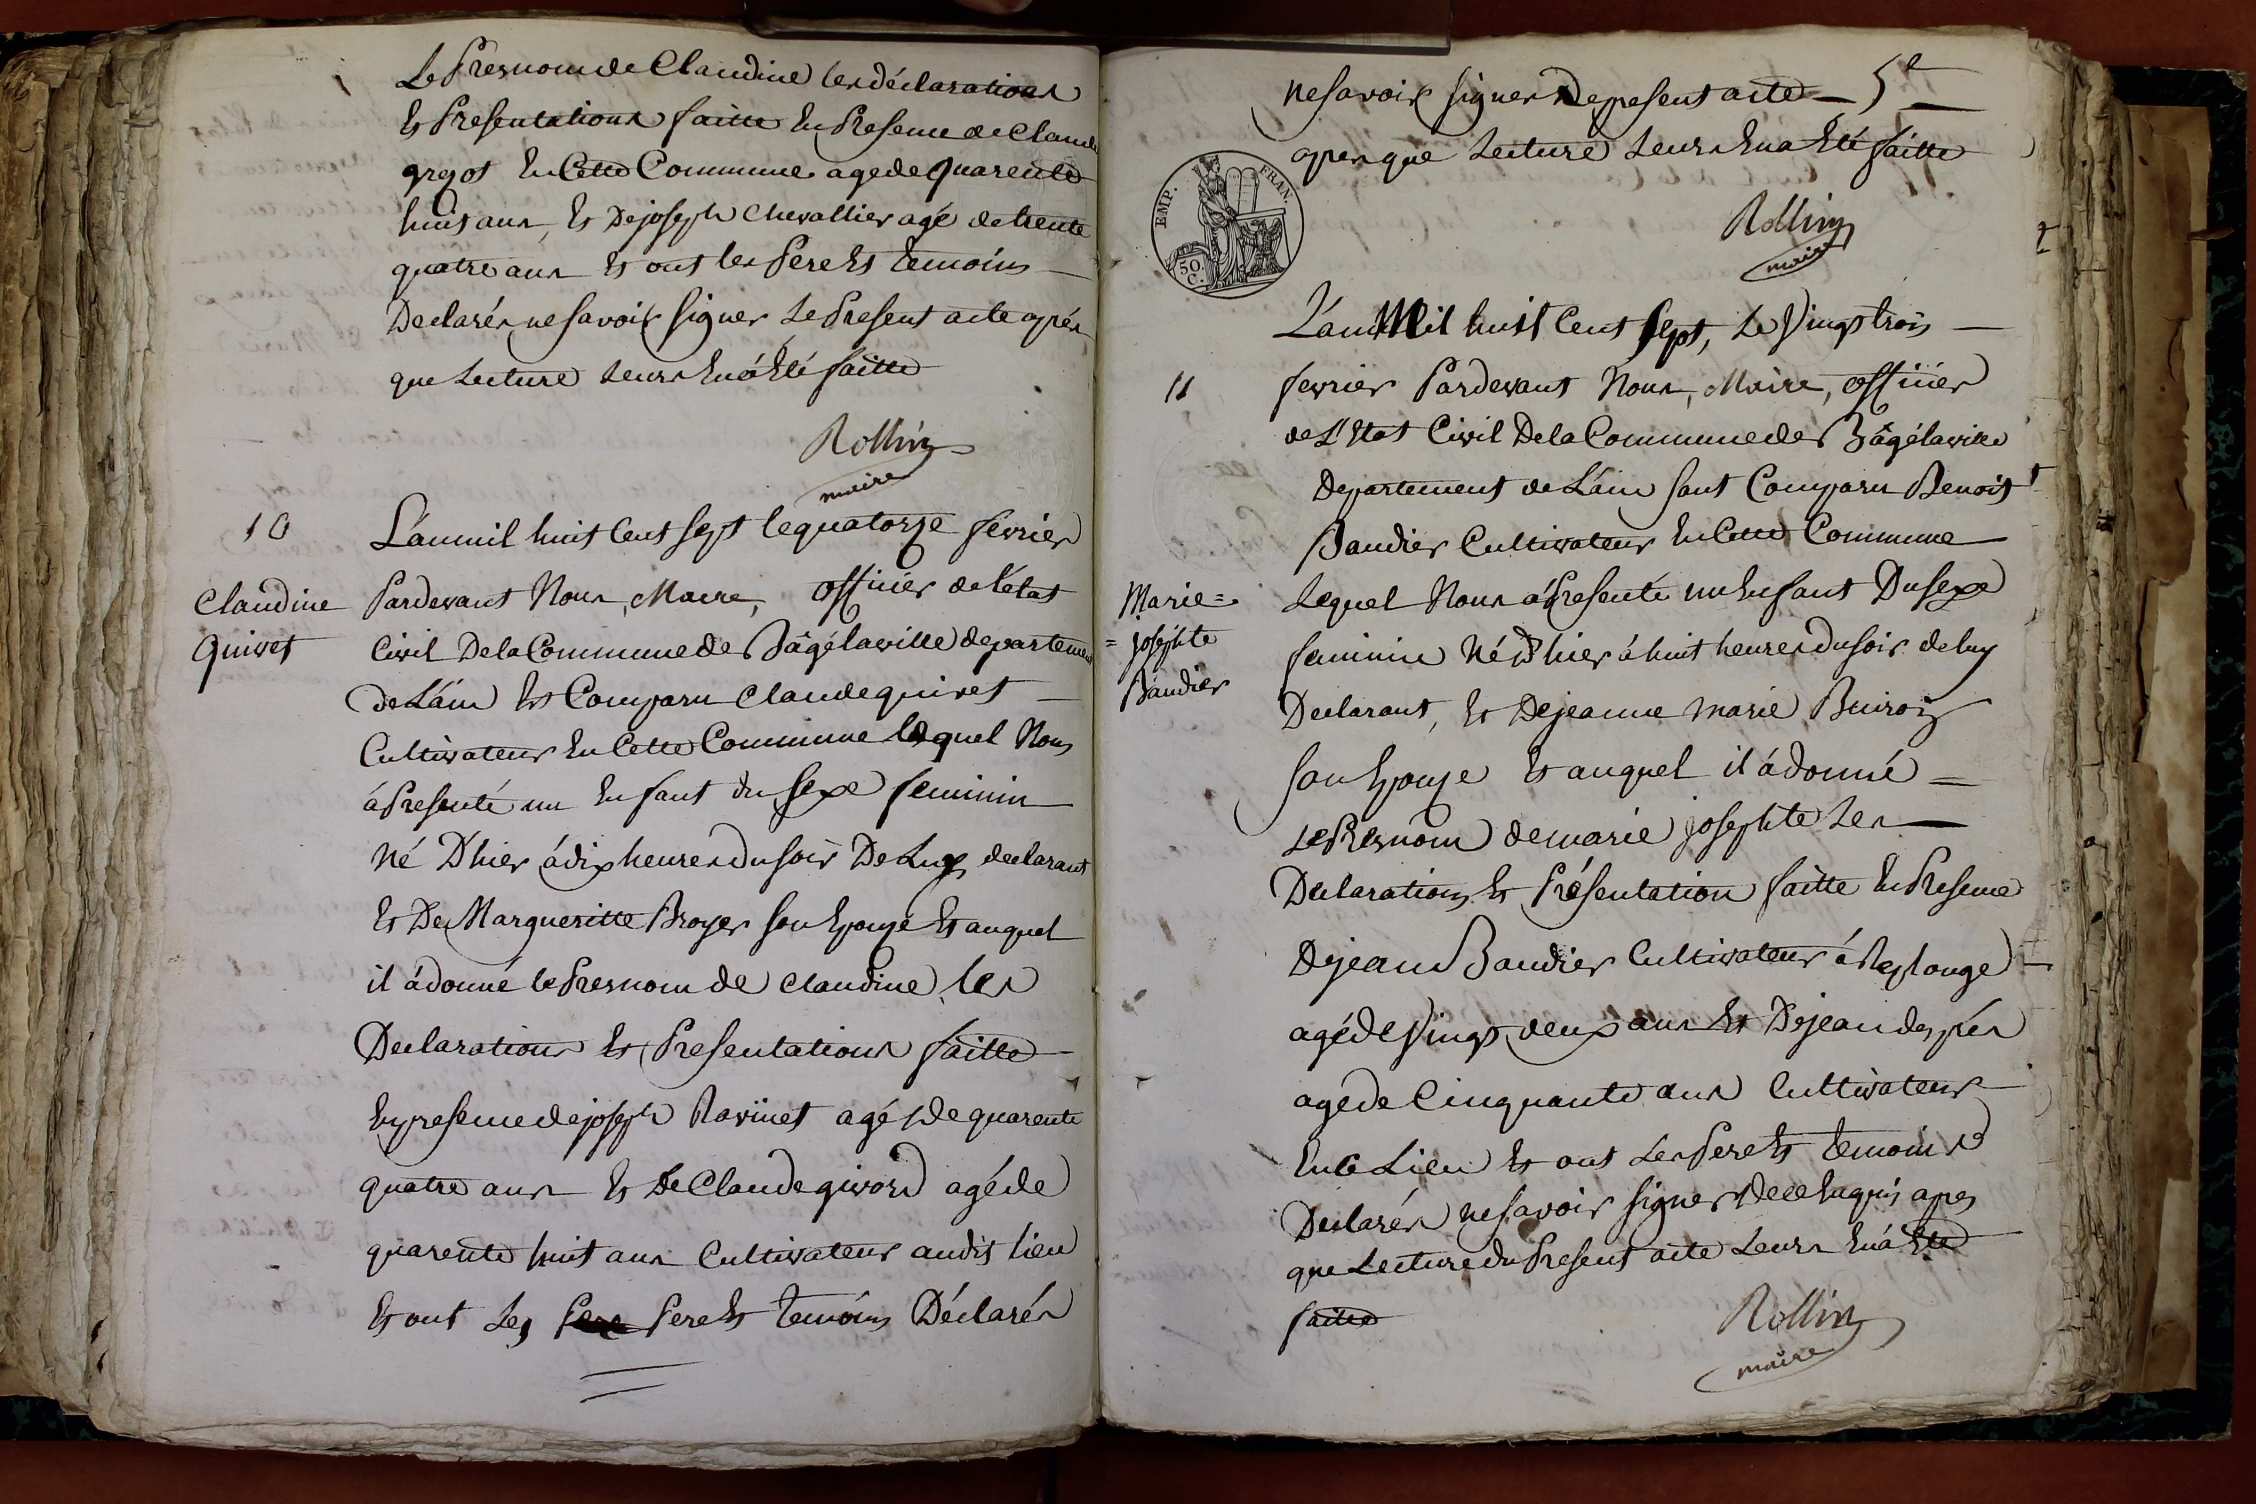 Le Presnom de Claudine les déclarations
Et Presentations faitte En Presence de Claude
gregot En Cette Commune agé de quarente
huit ans, Et De joseph Chevallier agé de trente
quatre ans Et ont les Pere Et temoins
Declarés ne savoir signer Le Present acte aprés
que Lecture Leurs En á Eté faitte
Rollin
maire
10
Claudine
quivet
L'an mil huit Cent sept le quatorze fevrier
Pardevant Nous, Maire, officier de l'état
Civil De la Commune de Bâgélaville departement
de L'áin Est Comparu Claude quivet
Cultivateur En Cette Commune lequel Nous
á Presenté un Enfant du sexe feminin
Né D'hier á dix heures du soir De Luy declarant
Et De Margueritte Broyer son Epouse Et auquel
il á donné le Presnom de Claudine, les
Declarations Et Presentations faitte
En presence de joseph Ravinet agé De quarente
quatre ans Et De Claude givord agé de
quarente huit ans Cultivateur audit lieu
Et ont Les Pere Et temoins Déclarés
ne savoir signer Le present acte 5e
apres que Lecture Leurs En a Eté faitte
Rollin
maire
EMP. FRAN.
50 C.
11
Marie=
=josephte
Baudier
L'an Mil huit Cent sept, Le Vingt trois
fevrier Pardevant Nous, Maire, officier
de L'Etat Civil De la Commune de Bâgélaville
Departement de L'áin sont Comparu Benoist
Baudier Cultivateur En Cette Commune
Lequel Nous á Presenté un Enfant Du sexe
feminin Né D'hier á huit heures du soir de luy
Declarant, Et De jeanne marie Buiron
son Epouse Et auquel il á donné =
Le Presnom de marie josephte Les
Declarations Et Présentation faitte En Presence
De jean Baudier Cultivateur á Replonge
agé de Vingt deux ans Et De jean després
agé de Cinquante ans Cultivateur
En ce Lieu Et ont Les Pere Et temoins
Declarés ne savoir signer De ce Enquis apres
que Lecture du Present acte Leurs En á Eté
faitte
Rollin
maire